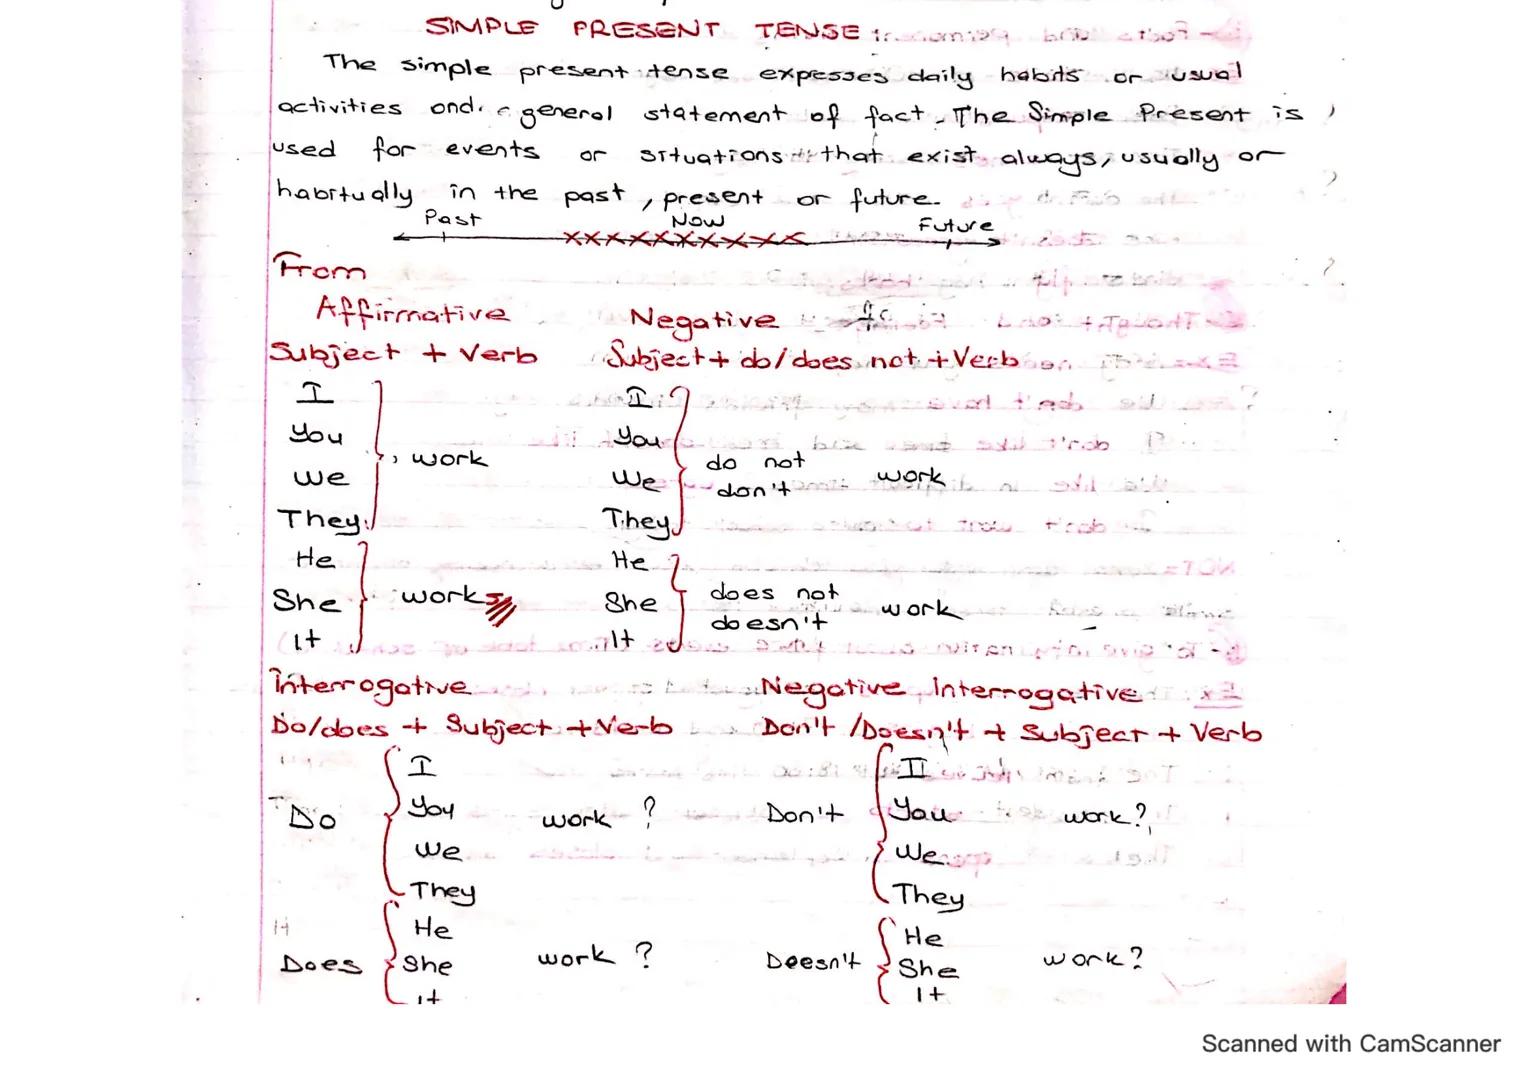 SIMPLE PRESENT TENSE
The simple present tense expesses daily habits or usual
activities and a general statement of fact. The Simple Present is
used for events or situations that exist always, usually or
habitually in the past, present or future.
Past Now Future
xxxxxxxxxxx
From
Affirmative Negative
Subject + Verb Subject + do/does not + Verb
I I
You You
, work do not work
We We don't
They They
He He
She works She does not work
It It doesn't
İnterrogative Negative İnterrogative
Do/does + Subject + Verb Don't /Doesn't + Subject + Verb
I I
Do You work ? Don't You work?
We We
They They
He He
Does She work ? Doesn't She work?
It It
Scanned with CamScanner